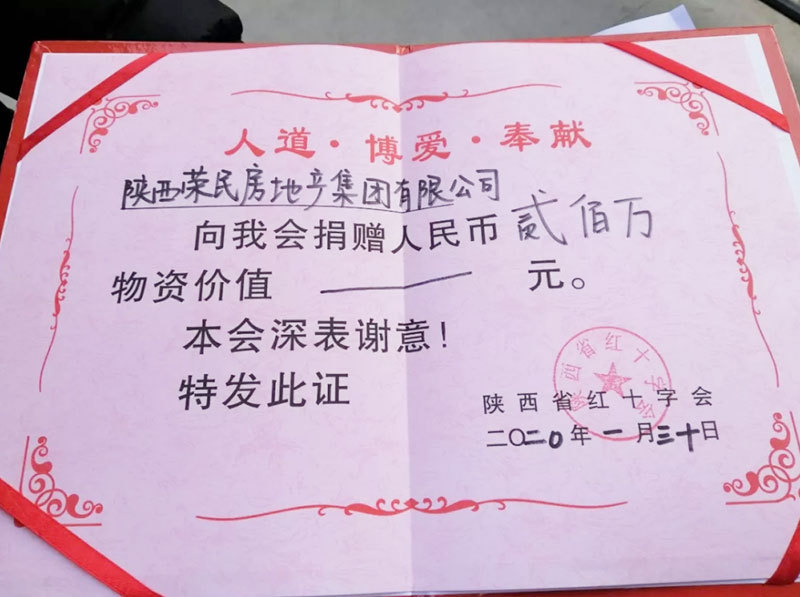 人道·博爱·奉献
陕西荣民房地产集团有限公司
向我会捐赠人民币贰佰万
物资价值 元。
本会深表谢意!
特发此证
陕西省红十字会
陕西省红十字会
二〇二〇年一月三十日